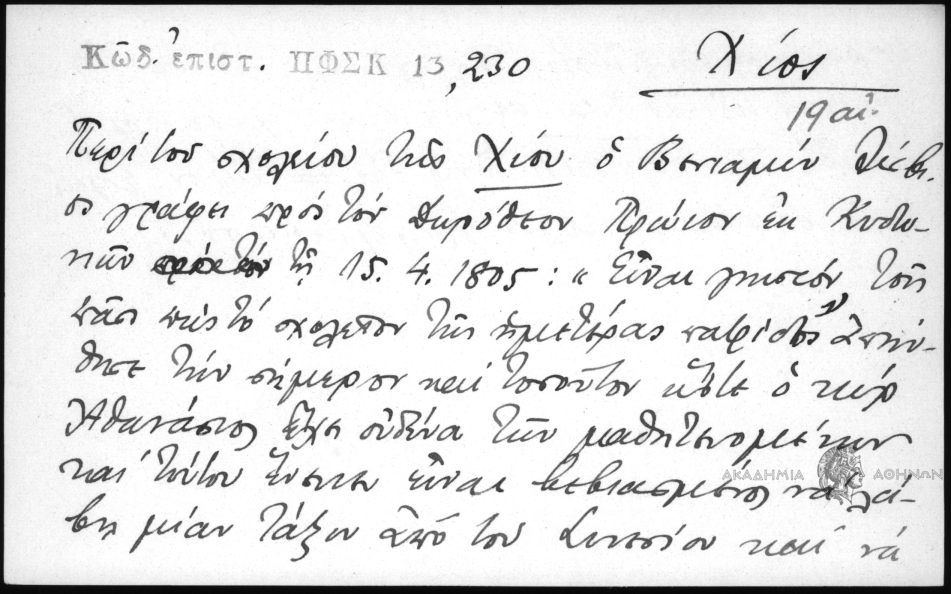 Κῶδ. ἐπιστ. ΠΦΣΚ 13, 230
Χίος
19 αἰ.
Περὶ τοῦ σχολείου τῆς Χίου ὁ Βενιαμὶν Λέσβι-
ος γράφει πρὸς τὸν Δωρόθεον Πρώιον ἐκ Κυδω-
νιῶν τῇ 15. 4. 1805 : « Εἶναι γνωστὸν τοῖς
πᾶσι πῶς τὸ σχολεῖον τῆς ἡμετέρας πατρίδος
τὴν σήμερον καὶ τοσοῦτον ὥστε ὁ κὺρ
Ἀθανάσιος ἔχει οὐδένα τῶν μαθητευομένων
καὶ τούτου ἕνεκεν εἶναι βεβιασμένος νὰ λά-
βῃ μίαν τάξιν ἀπὸ τοῦ Συνεσίου καὶ νὰ
ΑΚΑΔΗΜΙΑ ΑΘΗΝΩΝ